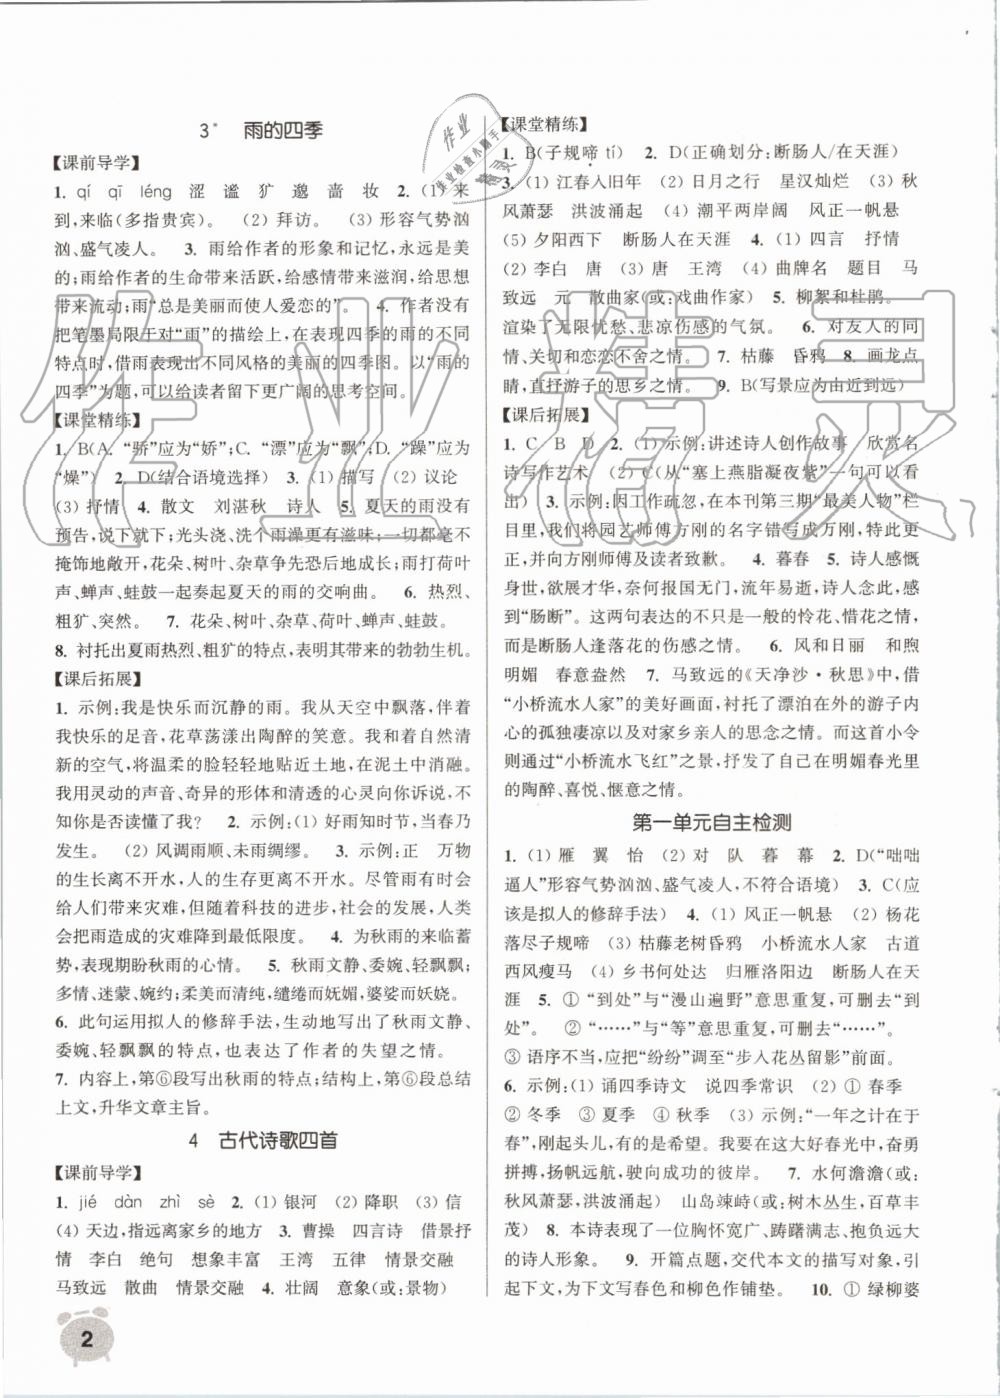 3* 雨的四季
【课前导学】
1. qí qī léng 涩 谧 犷 邈 啬 妆 2. (1) 来
到,来临(多指贵宾)。 (2) 拜访。 (3) 形容气势汹
汹、盛气凌人。 3. 雨给作者的形象和记忆,永远是美
的;雨给作者的生命带来活跃,给感情带来滋润,给思想
带来流动;雨“总是美丽而使人爱恋的”。 4. 作者没有
把笔墨局限于对“雨”的描绘上,在表现四季的雨的不同
特点时,借雨表现出不同风格的美丽的四季图。以“雨的
四季”为题,可以给读者留下更广阔的思考空间。
【课堂精练】
1. B(A. “骄”应为“娇”;C. “漂”应为“飘”;D. “躁”应为
“燥”) 2. D(结合语境选择) 3. (1) 描写 (2) 议论
(3) 抒情 4. 散文 刘湛秋 诗人 5. 夏天的雨没有
预告,说下就下;光头浇、洗个澡更有滋味;一切都毫不
掩饰地敞开,花朵、树叶、杂草争先恐后地成长;雨打荷叶
声、蝉声、蛙鼓一起奏起夏天的雨的交响曲。 6. 热烈、
粗犷、突然。 7. 花朵、树叶、杂草、荷叶、蝉声、蛙鼓。
8. 衬托出夏雨热烈、粗犷的特点,表明其带来的勃勃生机。
【课后拓展】
1. 示例:我是快乐而沉静的雨。我从天空中飘落,伴着
我快乐的足音,花草荡漾出陶醉的笑意。我和着自然清
新的空气,将温柔的脸轻轻地贴近土地,在泥土中消融。
我用灵动的声音、奇异的形体和清透的心灵和你诉说,不
知你是否读懂了我? 2. 示例:(1) 好雨知时节,当春乃
发生。 (2) 风调雨顺、未雨绸缪。 3. 示例:正 万物
的生长离不开水,人们的生活离不开水。尽管雨有时会
给人们带来灾难,但随着科技的进步,社会的发展,人类
会把雨造成的灾难降到最低限度。 4. 为秋雨的来临蓄
势,表现期盼秋雨的心情。 5. 秋雨文静、委婉、轻飘飘;
多情、迷蒙、婉约;柔美而清纯,缱绻而妩媚,婆娑而妖娆。
6. 此句运用拟人的修辞手法,生动地写出了秋雨文静、
委婉、轻飘飘的特点,也表达了作者的失望之情。
7. 内容上,第⑥段写出秋雨的特点;结构上,第⑥段总结
上文,升华文章主旨。
4 古代诗歌四首
【课前导学】
1. jié dàn zhì sè 2. (1) 银河 (2) 降职 (3) 信
(4) 天边,指远离家乡的地方 3. 曹操 四言诗 借景抒
情 李白 绝句 想象丰富 王湾 五律 情景交融
马致远 散曲 情景交融 4. 壮阔 意象(或:景物)
2
【课堂精练】
1. B(子规啼 tí) 2. D(正确划分:断肠人/在天涯)
3. (1) 江春入旧年 (2) 日月之行 星汉灿烂 (3) 秋
风萧瑟 洪波涌起 (4) 潮平两岸阔 风正一帆悬
(5) 夕阳西下 断肠人在天涯 4. (1) 四言 抒情
(2) 李白 唐 (3) 唐 王湾 (4) 曲牌名 题目 马
致远 元 散曲家(或:戏曲作家) 5. 柳絮和杜鹃。
渲染了无限忧愁、悲凉伤感的气氛。 6. 对友人的同
情、关切和恋恋不舍之情。 7. 枯藤 昏鸦 8. 画龙点
睛,直抒游子的思乡之情。 9. B(写景应为由近到远)
【课后拓展】
1. C B D 2. (1) 示例:讲述诗人创作故事 欣赏名
诗写作艺术 (2) C(从“塞上燕脂凝夜紫”一句可以看
出) 3. 示例:因工作疏忽,在本刊第三期“最美人物”栏
目里,我们将园艺师傅方刚的名字错写成万刚,特此更
正,并向方刚师傅及读者致歉。 4. 暮春 5. 诗人感慨
身世,欲展才华,奈何报国无门,流年易逝,诗人念此,感
到“肠断”。这两句表达的不只是一般的怜花、惜花之情,
而是断肠人逢落花的伤感之情。 6. 风和日丽 和煦
明媚 春意盎然 7. 马致远的《天净沙·秋思》中,借
“小桥流水人家”的美好画面,衬托了漂泊在外的游子内心
的孤独凄凉以及对家乡亲人的思念之情。而这首小令
则通过“小桥流水飞红”之景,抒发了自己在明媚春光里
的陶醉、喜悦、惬意之情。
第一单元自主检测
1. (1) 雁 翼 怡 (2) 对 队 暮 幕 2. D(“咄咄
逼人”形容气势汹汹、盛气凌人,不符合语境) 3. C(应
该是拟人的修辞手法) 4. (1) 风正一帆悬 (2) 杨花
落尽子规啼 (3) 枯藤老树昏鸦 小桥流水人家 古道
西风瘦马 (4) 乡书何处达 归雁洛阳边 断肠人在天
涯 5. ① “到处”与“漫山遍野”意思重复,可删去“到
处”。 ② “……”与“等”意思重复,可删去“……”。
③ 语序不当,应把“纷纷”调至“步入花丛留影”前面。
6. 示例:(1) 诵四季诗文 说四季常识 (2) ① 春季
② 冬季 ③ 夏季 ④ 秋季 (3) 示例:“一年之计在于
春”,刚起头儿,有的是希望。要在这大好春光中,奋勇
拼搏,扬帆远航,驶向成功的彼岸。 7. 水何澹澹(或:
秋风萧瑟,洪波涌起) 山岛竦峙(或:树木丛生,百草丰
茂) 8. 本诗表现了一位胸怀宽广、踌躇满志、抱负远大
的诗人形象。 9. 开篇点题,交代本文的描写对象,引
起下文,为下文写春色和柳色作铺垫。 10. ① 绿柳婆
作业精灵
作业
作业检查小助手
精灵